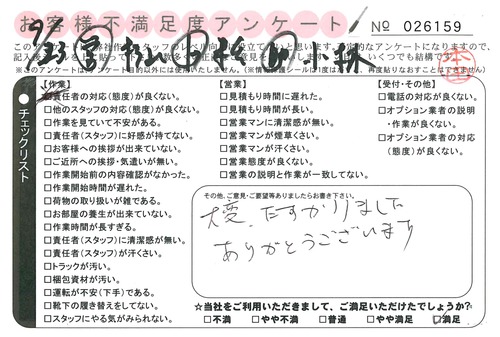 お客様不満足度アンケート
№ 026159
チェックリスト
【作業】
□責任者の対応(態度)が良くない。
□他のスタッフの対応(態度)が良くない。
□作業を見ていて不安がある。
□責任者(スタッフ)に好感が持てない。
□お客様への挨拶が出来ていない。
□ご近所への挨拶・気遣いが無い。
□作業開始前の内容確認がなかった。
□作業開始時間が遅れた。
□荷物の取り扱いが雑である。
□お部屋の養生が出来ていない。
□作業時間が長すぎる。
□責任者(スタッフ)に清潔感が無い。
□責任者(スタッフ)が汗くさい。
□トラックが汚い。
□梱包資材が汚い。
□運転が不安(下手)である。
□靴下の履き替えをしてない。
□スタッフにやる気がみられない。
【営業】
□見積もり時間に遅れた。
□見積もり時間が長い。
□営業マンに清潔感が無い。
□営業マンが煙草くさい。
□営業マンが汗くさい。
□営業態度が良くない。
□営業の説明と作業が一致してない。
【受付・その他】
□電話の対応が良くない。
□オプション業者の説明・作業が良くない。
□オプション業者の対応(態度)が良くない。
その他、ご意見・ご要望等ありましたらお書き下さい。
大変、たすかりました
ありがとうございます
☆当社をご利用いただきまして、ご満足いただけたでしょうか?
□不満 □やや不満 □普通 □やや満足 ☑満足